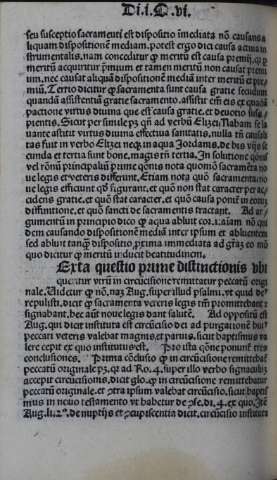 Di.i. Q. vi.
seu susceptio sacramēti est dispositio īmediata nō causans a
liquam dispositionē mediam. potest ergo dici causa actiua in
strumentalis. nam conceditur ꝙ meritū est causa premij. qꝛ ꝑ
meritū acquiritur p̄mium et tamen meritū non causat premi
um. nec causat aliquā dispositionē mediā inter meritū et pre
miū. Tertio dicitur ꝙ sacramenta sunt causa gratie secundum
quandā assistentiā gratie sacramento. assistit em̄ eis ex quadā
pactione virtus diuina que est causa gratie. et deuotio susci
pientis. Stat per simile de verbo Elizei. Naaman se la
uante astitit virtus diuina effectiua sanitatis. nulla tn̄ causali
tas fuit in verbo Elizei nec in aqua Jordanis. de his vijs se
cunda et tertia sunt bone. magis tn̄ tertia. In solutione q̄stiōis
vel rōnū principaliū prime q̄onis nota quomō sacramēta no
ue legis et veteris differunt. Etiam nota quō sacramenta no
ue legis efficiunt qd̓ figurant. et quō non stat caracter per ac
cidens gratie. et quō stat caracter. et quō causa ponit̄ in eorū
diffinitione. et quō sancti de sacramentis tractant. Ad ar
gumentū in principio dico ꝙ aqua abluit cor. nō qui
dem causando dispositionē mediā inter ipsum et abluentem
sed abluit tanqͣ dispositio prima immediata ad gr̄az eo mō
quo dicitur ꝙ meritū inducit beatitudinem.
Exta questio prime distinctionis vbi
queritur vtrū in circūcisione remittatur peccatū origi
nale. Videtur ꝙ nō. nam Aug. super illud psalmi. vt quid deꝰ
repulisti. dicit ꝙ sacramenta veteris legis tm̄ promittebant et
signabant. hec aūt noue legis dant salutē. Ad oppositū est
Aug. qui dicit instituta est circūcisio dei ad purgationē
peccati veteris valebat magnis et paruis. sicut baptismus va
lere cepit ex quo institutus est. Pro ista q̄one ponunt̄ tres
conclusiones. Prima cōclusio ꝙ in circūcisione remittebat̄
peccatū originale p̄z. qꝛ ad Ro. 4. super illo verbo signaculū
accepit circūcisionis. dicit glo. ꝙ in circūcisione remittebatur
peccatū originale. et cōtra ipsum valebat circūcisio. sicut baptis
mus in nouo testamento vt habetur de 9se. di. 4. ex quo. Item
Aug. li. 2°. de nuptijs et cōcupiscentia dicit. circūcisio instituta